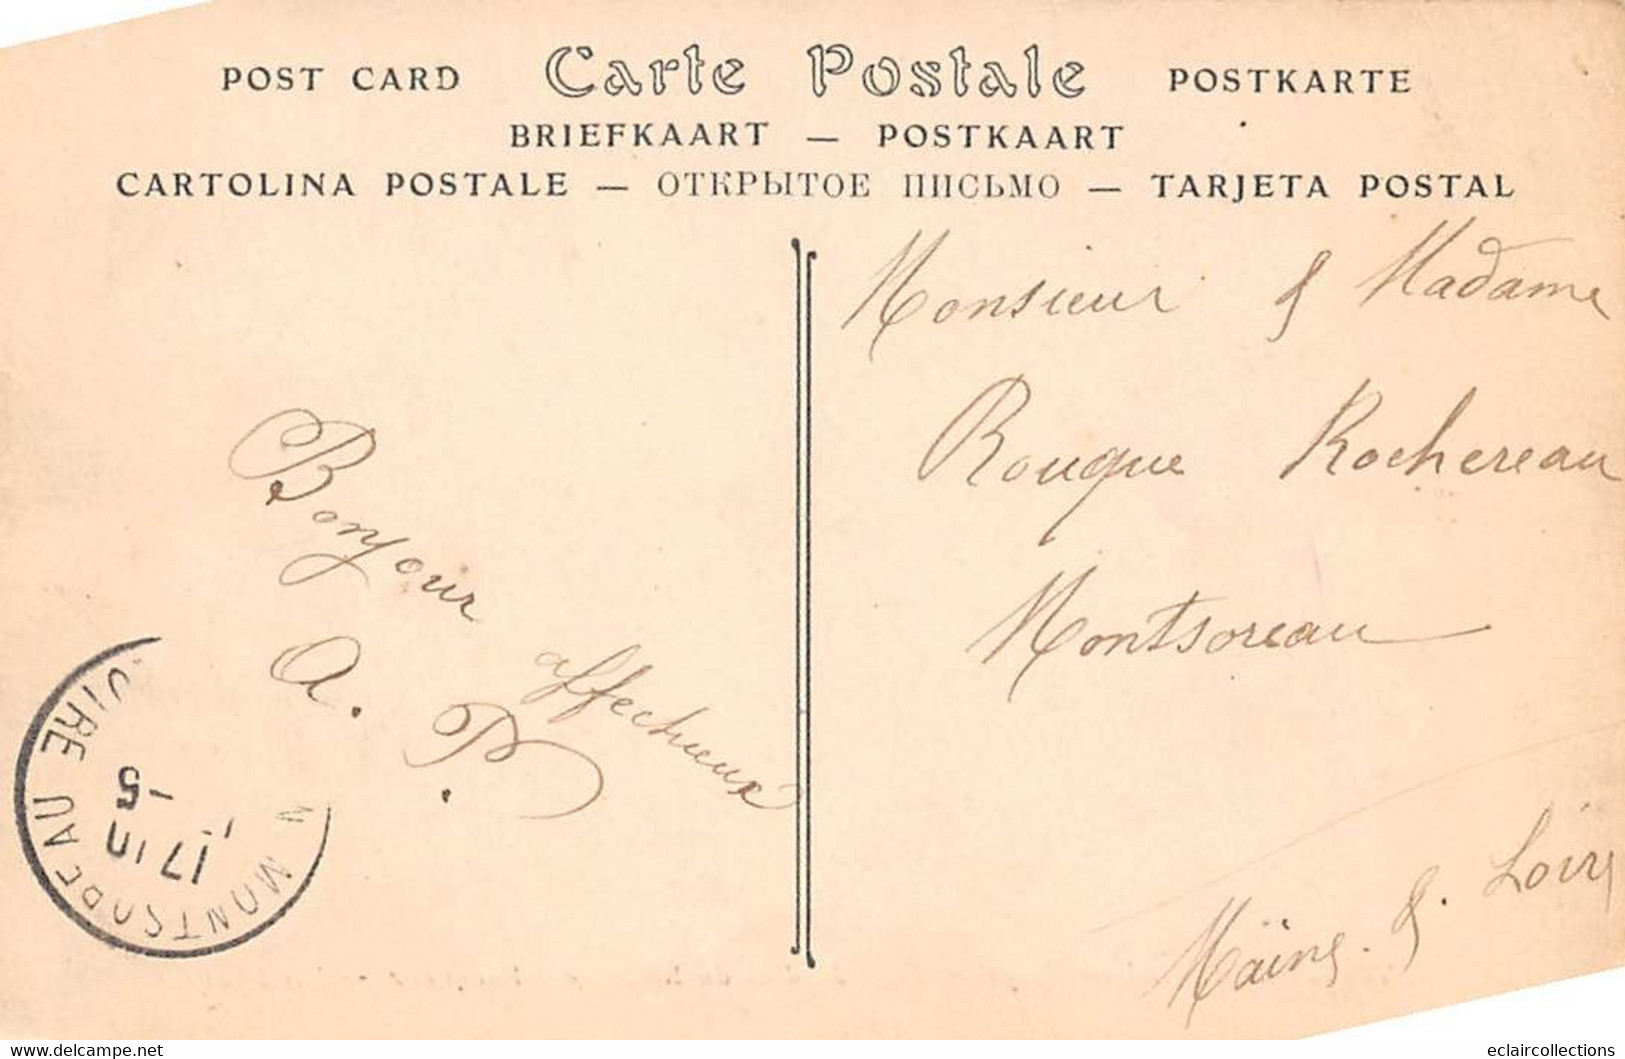 POST CARD Carte Postale POSTKARTE
BRIEFKAART — POSTKAART
CARTOLINA POSTALE — ОТКРЫТОЕ ПИСЬМО — TARJETA POSTAL
Bonjour
affectueux
A. P.
Monsieur & Madame
Rouque Rochereau
Montsoreau
Maine. & . Loire
MONTSOREAU
17
-5
eclaircollections